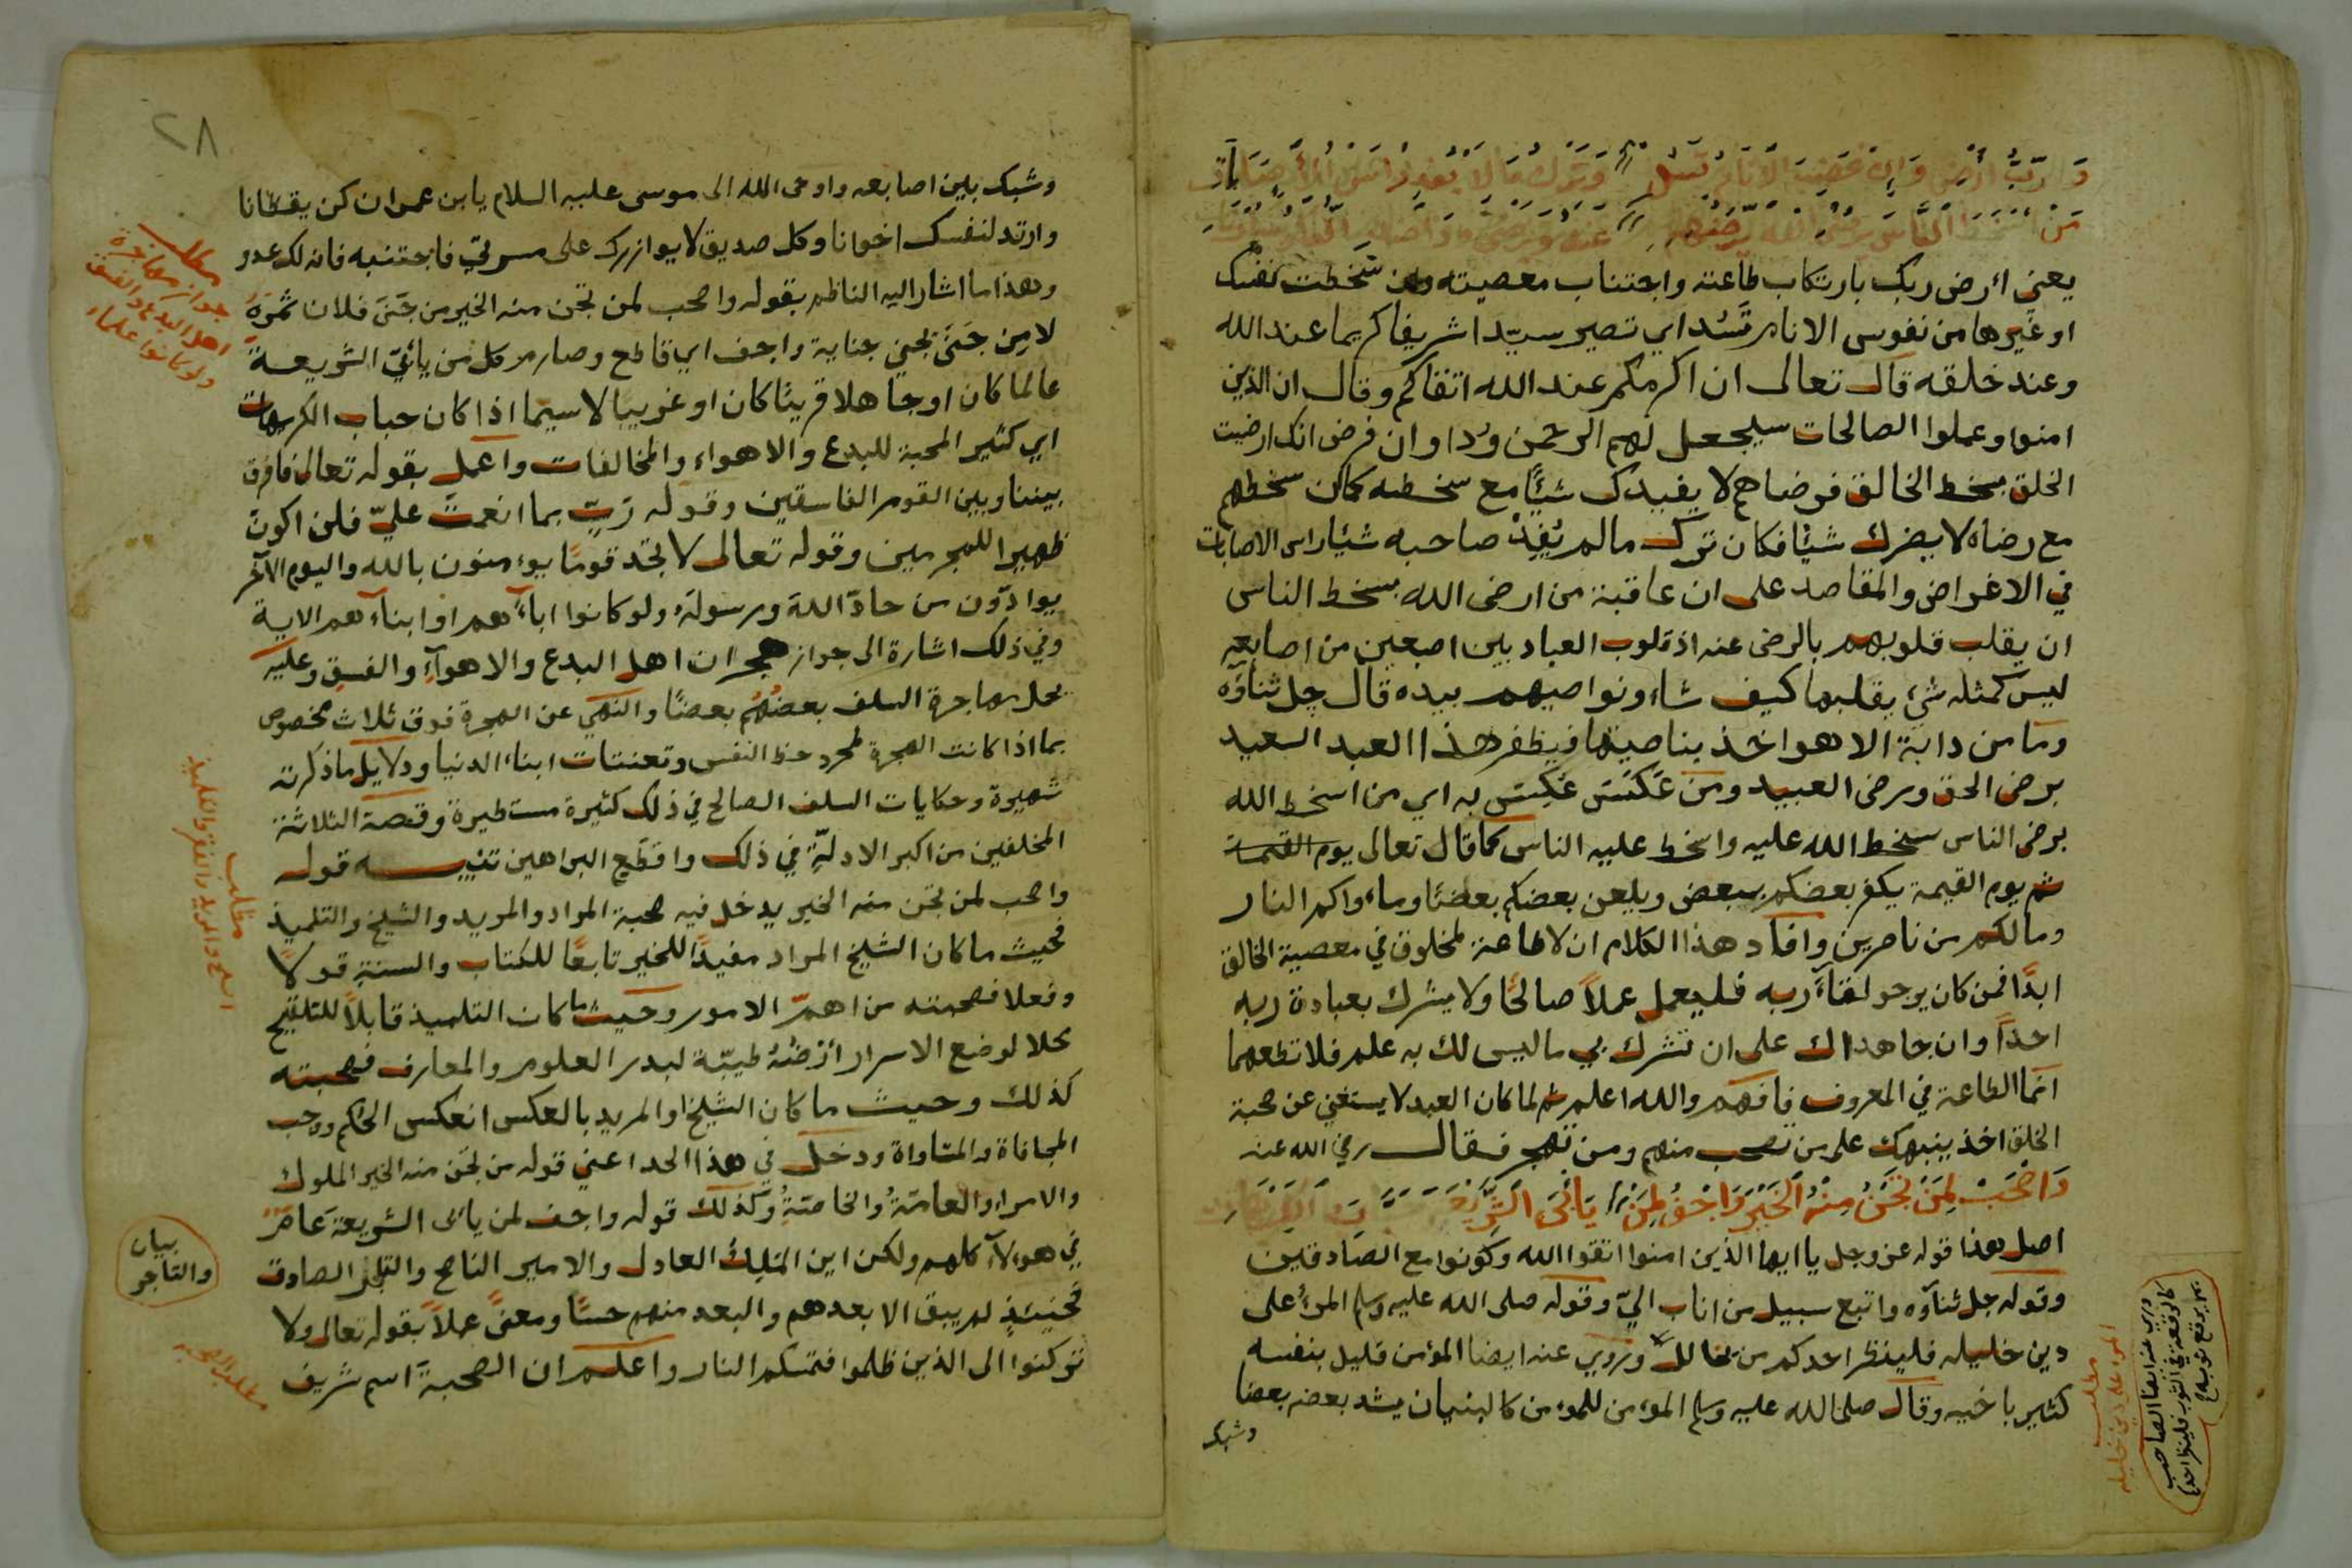 وَارَبَّكَ ارْضِ وَإِنْ غَضِبَ الأَنَامُ تَسُدْ وَتَرْكُ مَا لَا يُفِدْ رَأْسُ الأَصَابَاتِ
مَنْ النَّاسَ يُرْضِهُم عَنْهُ
يعني ارض ربك بارتكاب طاعته واجتناب معصيته وان سخطت نفسك
او غيرها من نفوس الانام تَسُد اي تصير سيّدا شريفا كريما عند الله
وعند خلقه قال تعالى ان اكرمكم عند الله اتقاكم وقال ان الذين
امنوا وعملوا الصالحات سيجعل لهم الرحمن ودا وان فرض انك ارضيت
الخلق بسخط الخالق فرضاهم لا يفيدك شيئًا مع سخطه كما ان سخطهم
مع رضاه لا يضرك شيئًا فكان ترك مالم يُفِدْ صاحبه شيئا راس الاصابات
في الاغراض والمقاصد على ان عاقبة من ارضى الله بسخط الناس
ان يقلب قلوبهم بالرضى عنه اذ قلوب العباد بين اصبعين من اصابعه
ليس كمثله شيء يقلبها كيف شاء ونواصيهم بيده قال جل ثناؤه
وما من دابة الا هو اخذ بناصيتها فيظفر هذا العبد السعيد
برضى الحق ورضى العبيد ومن عَكَسَ عُكِسَ به اي من اسخط الله
برضى الناس سخط الله عليه واسخط عليه الناس كما قال تعالى يوم القيمة
ثم يوم القيمة يكفر بعضكم ببعض ويلعن بعضكم بعضًا وماواكم النار
ومالكم من ناصرين وافاد هذا الكلام ان لا طاعة لمخلوق في معصية الخالق
ابدًا فمن كان يرجو لقآءَ ربه فليعمل عملاً صالحًا ولا يشرك بعبادة ربه
احدًا وان جاهداك على ان تشرك بي ما ليس لك به علم فلا تطعهما
انما الطاعة في المعروف فافهم والله اعلم ثم لما كان العبد لا يستغني عن صحبة
الخلق اخذ ينبهك على من تصحب منهم ومن تهجر فقال رضي الله عنه
وَاصْحَبْ لِمَنْ تَجْنِ مِنْهُ الخَيْرَ وَاجْفُ لِمَنْ يَأْبَى الشَّرِيعَةَ
اصل هذا قوله عز وجل يا ايها الذين امنوا اتقوا الله وكونوا مع الصادقين
وقوله جل ثناؤه واتبع سبيل من اناب اليّ وقوله صلى الله عليه وسلم المرءُ على
دين خليله فلينظر احدكم من يخالل وروي عنه ايضا المؤمن قليل بنفسه
كثير باخيه وقال صلى الله عليه وسلم المؤمن للمؤمن كالبنيان يشد بعضه بعضا
وشبك
مطلب
المرء على دين خليله
وروي عنه ايضا الصاحب
كالرقعة في الثوب فلينظر احدكم
بم يرقع ثوبه
٢٨
وشبك بين اصابعه واوحى الله الى موسى عليه السلام يا بن عمران كن يقظانا
وارتد لنفسك اخوانا وكل صديق لا يوازرك على مسرتي فاجتنبه فانه لك عدو
وهذا ما اشار اليه الناظم بقوله واصحب لمن تجن منه الخير من جَنَى فلان ثمرَةً
لا مِن جَنَى يجني جناية واجف اي قاطع وصارم كل من يأبى الشريعة
عالما كان او جاهلا قريبًا كان او غريبا لا سيما اذا كان حباب الكريهات
اي كثير المحبة للبدع والاهواء والمخالفات واعمل بقوله تعالى فافرق
بيننا وبين القوم الفاسقين وقوله رَبِّ بما انعمتَ عليّ فلن اكون
ظهيرا للمجرمين وقوله تعالى لا تجد قومًا يؤمنون بالله واليوم الآخر
يوادّون من حادّ اللهَ ورسولهُ ولو كانوا اباءَهم او ابنآءهم الاية
وفي ذلك اشارة الى جواز هجران اهل البدع والاهوآءِ والفسق وعليه
يحل مهاجرة السلف بعضُهُم بعضًا والنهي عن الهجرة فوق ثلاث مخصوص
بما اذا كانت الهجرة لمجرد حظ النفس وتعنتات ابناء الدنيا ودلايل ما ذكرته
شهيرة وحكايات السلف الصالح في ذلك كثيرة مستطيرة وقصة الثلاثة
المخلفين من اكبر الادلةِ في ذلك واقطع البراهين تنبيـــه قوله
واصحب لمن تجن منه الخير يدخل فيه صحبة المراد والمريد والشيخ والتلميذ
فحيث ما كان الشيخ المراد مفيدًا للخير تابعًا للكتاب والسنةِ قولاً
وفعلا فصحبته من اهمّ الامور وحيث ما كان التلميذ قابلاً للتلقيح
محلا لوضع الاسرار ارضُهُ طيبّة لبذر العلوم والمعارف فصحبته
كذلك وحيث ما كان الشيخ او المريد بالعكس انعكس الحُكم ووجب
المجافاة والمناواة ودخل في هذا الحد اعني قوله من تجن منه الخير الملوك
والامراء والعامّةُ والخاصّةُ وكذلك قوله واجف لمن يابى الشريعة عَامٌّ
في هؤلآء كلهم ولكن اين المَلِكُ العادل والامير الناصح والتاجر الصادق
فحينئذٍ لم يبق الا بعدهم والبعد منهم حسًّا ومعنًى عملاً بقوله تعالى ولا
تركنوا الى الذين ظلموا فتمسكم النار واعلم ان الصحبةَ اسم شريف
مطلب
جواز مهاجرة
اهل البدع والفسق
ولو كانوا علماء
مطلب
الشيخ والمريد والفقير والتلميذ
بيان
والتاجر